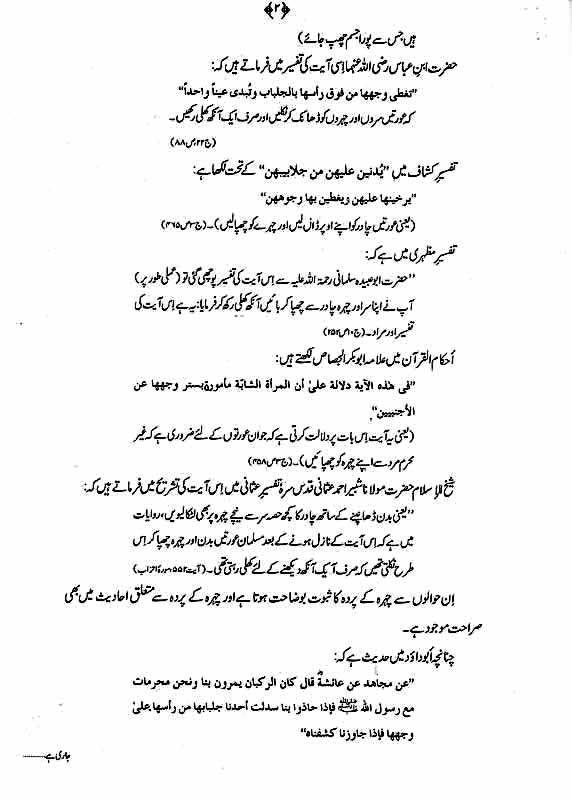 ﴿۲﴾
ہیں جس سے پورا جسم چھپ جائے)
حضرت ابن عباس رضی اللہ عنہما اسی آیت کی تفسیر میں فرماتے ہیں کہ:
"تغطی وجهها من فوق رأسها بالجلباب وتُبدی عیناً واحداً"
کہ عورتیں سروں اور چہروں کو ڈھانک کر نکلیں اور صرف ایک آنکھ کھلی رکھیں۔
(ج۲۲ص۸۸)
تفسیر کشاف میں "یُدنین علیهن من جلابیبهن" کے تحت لکھا ہے:
"یرخینها علیهن ویغطین بها وجوههن"
(یعنی عورتیں چادر کو اپنے اوپر ڈال لیں اور چہرے کو چھپالیں)۔(ج۳ص۴۶۵)
تفسیر مظہری میں ہے کہ:
"حضرت ابوعبیدہ سلمانی رحمۃ اللہ علیہ سے اِس آیت کی تفسیر پوچھی گئی تو (عملی طور پر)
آپ نے اپنا سر اور چہرہ چادر سے چھپا کر بائیں آنکھ کھلی رکھ کر فرمایا: یہ ہے اِس آیت کی
تفسیر اور مراد۔ (ج۱۰ص۲۵۲)
أحکام القرآن میں علامہ ابوبکر الجصاص لکھتے ہیں:
"فی هذه الآیة دلالة علیٰ أن المرأة الشابة مأمورة بستر وجهها عن
الأجنبیین"
(یعنی یہ آیت اِس بات پر دلالت کرتی ہے کہ جوان عورتوں کے لئے ضروری ہے کہ غیر
محرم مرد سے اپنے چہرہ کو چھپائیں)۔(ج۳ص۴۵۸)
شیخ الإسلام حضرت مولانا شبیر احمد عثمانی قدس سرہٗ تفسیر عثمانی میں اِس آیت کی تشریح میں فرماتے ہیں کہ:
"یعنی بدن ڈھانپنے کے ساتھ چادر کا کچھ حصہ سر سے نیچے چہرہ پر بھی لٹکالیویں، روایات
میں ہے کہ اِس آیت کے نازل ہونے کے بعد مسلمان عورتیں بدن اور چہرہ چھپا کر اِس
طرح نکلتی تھیں کہ صرف ایک آنکھ دیکھنے کے لئے کھلی رہتی تھی۔ (آیت سورۂ احزاب)
اِن حوالوں سے چہرہ کے پردہ کا ثبوت بوضاحت ہوتا ہے اور چہرہ کے پردہ سے متعلق احادیث میں بھی
صراحت موجود ہے۔
چنانچہ أبوداؤد میں حدیث ہے کہ:
"عن مجاهد عن عائشةؓ قال کان الرکبان یمرون بنا ونحن محرمات
مع رسول اللہ ﷺ فإذا حاذوا بنا سدلت أحدنا جلبابها من رأسها علیٰ
وجهها فإذا جاوزنا کشفناه"
جاری ہے